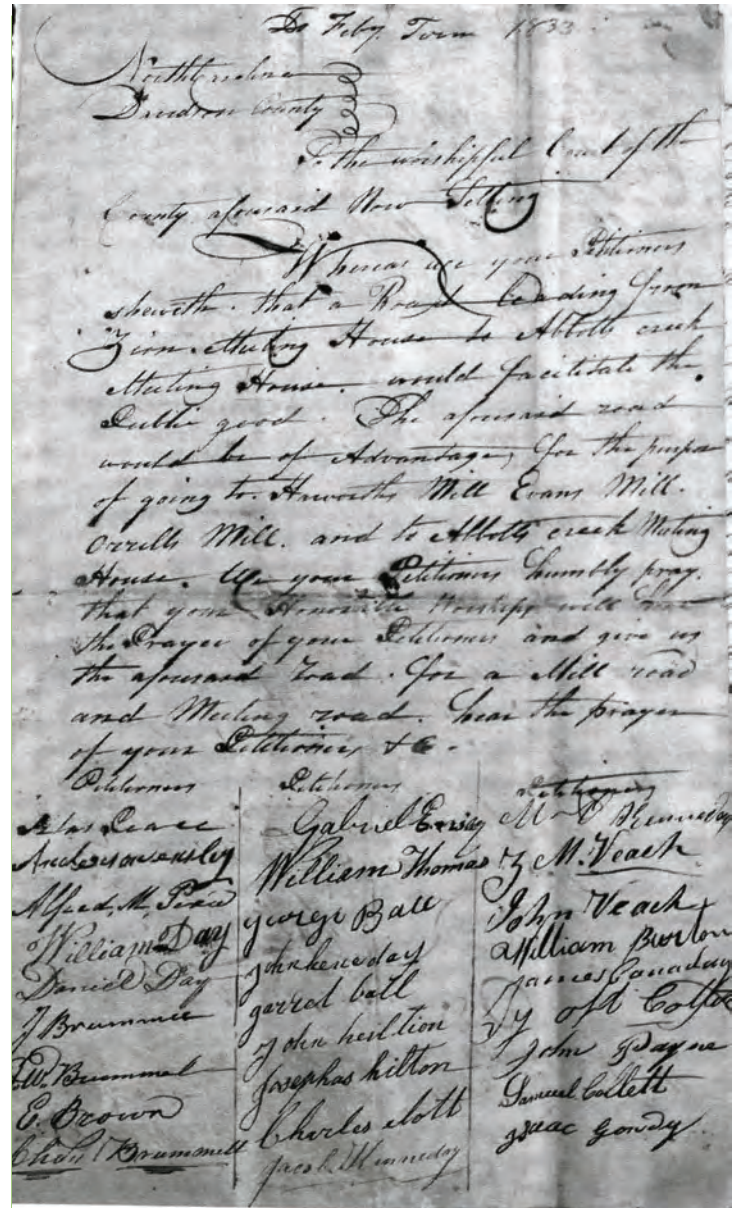 To Feby. Term 1833
North Carolina
Davidson County
To the worshipful Court of the
County afouraid Now Sitting
Whereas we your Petitioners
sheweth. that a Road leading from
Zion Meeting House to Abbotts creek
Meeting House. would facilitate the
Public good. The afouraid road
would be of Advantage, for the purpose
of going to. Haworths Mill Evans Mill.
Orrells Mill. and to Abbotts creek Meeting
House. We your Petitioners humbly pray.
that your Honorable Worships will hear
the Prayer of your Petitioners and give us
the afouraid road. for a Mill road
and Meeting road. hear the prayer
of your Petitioners &c.
Petitioners
Alfred, M,
William Day
Daniel Day
J Brummell
W. Brummel
E. Brown
Brummell
Petitioners
Gabriel
William Thomas
george Ball
john keneday
garrel ball
john
Josephas hilton
Charles
Jacob Kenneday
Petitioners
Kenneday
Z M. Veach
John Veach
William Burton
James Canaday
John Payne
Samuel Collett
isaac Gordy